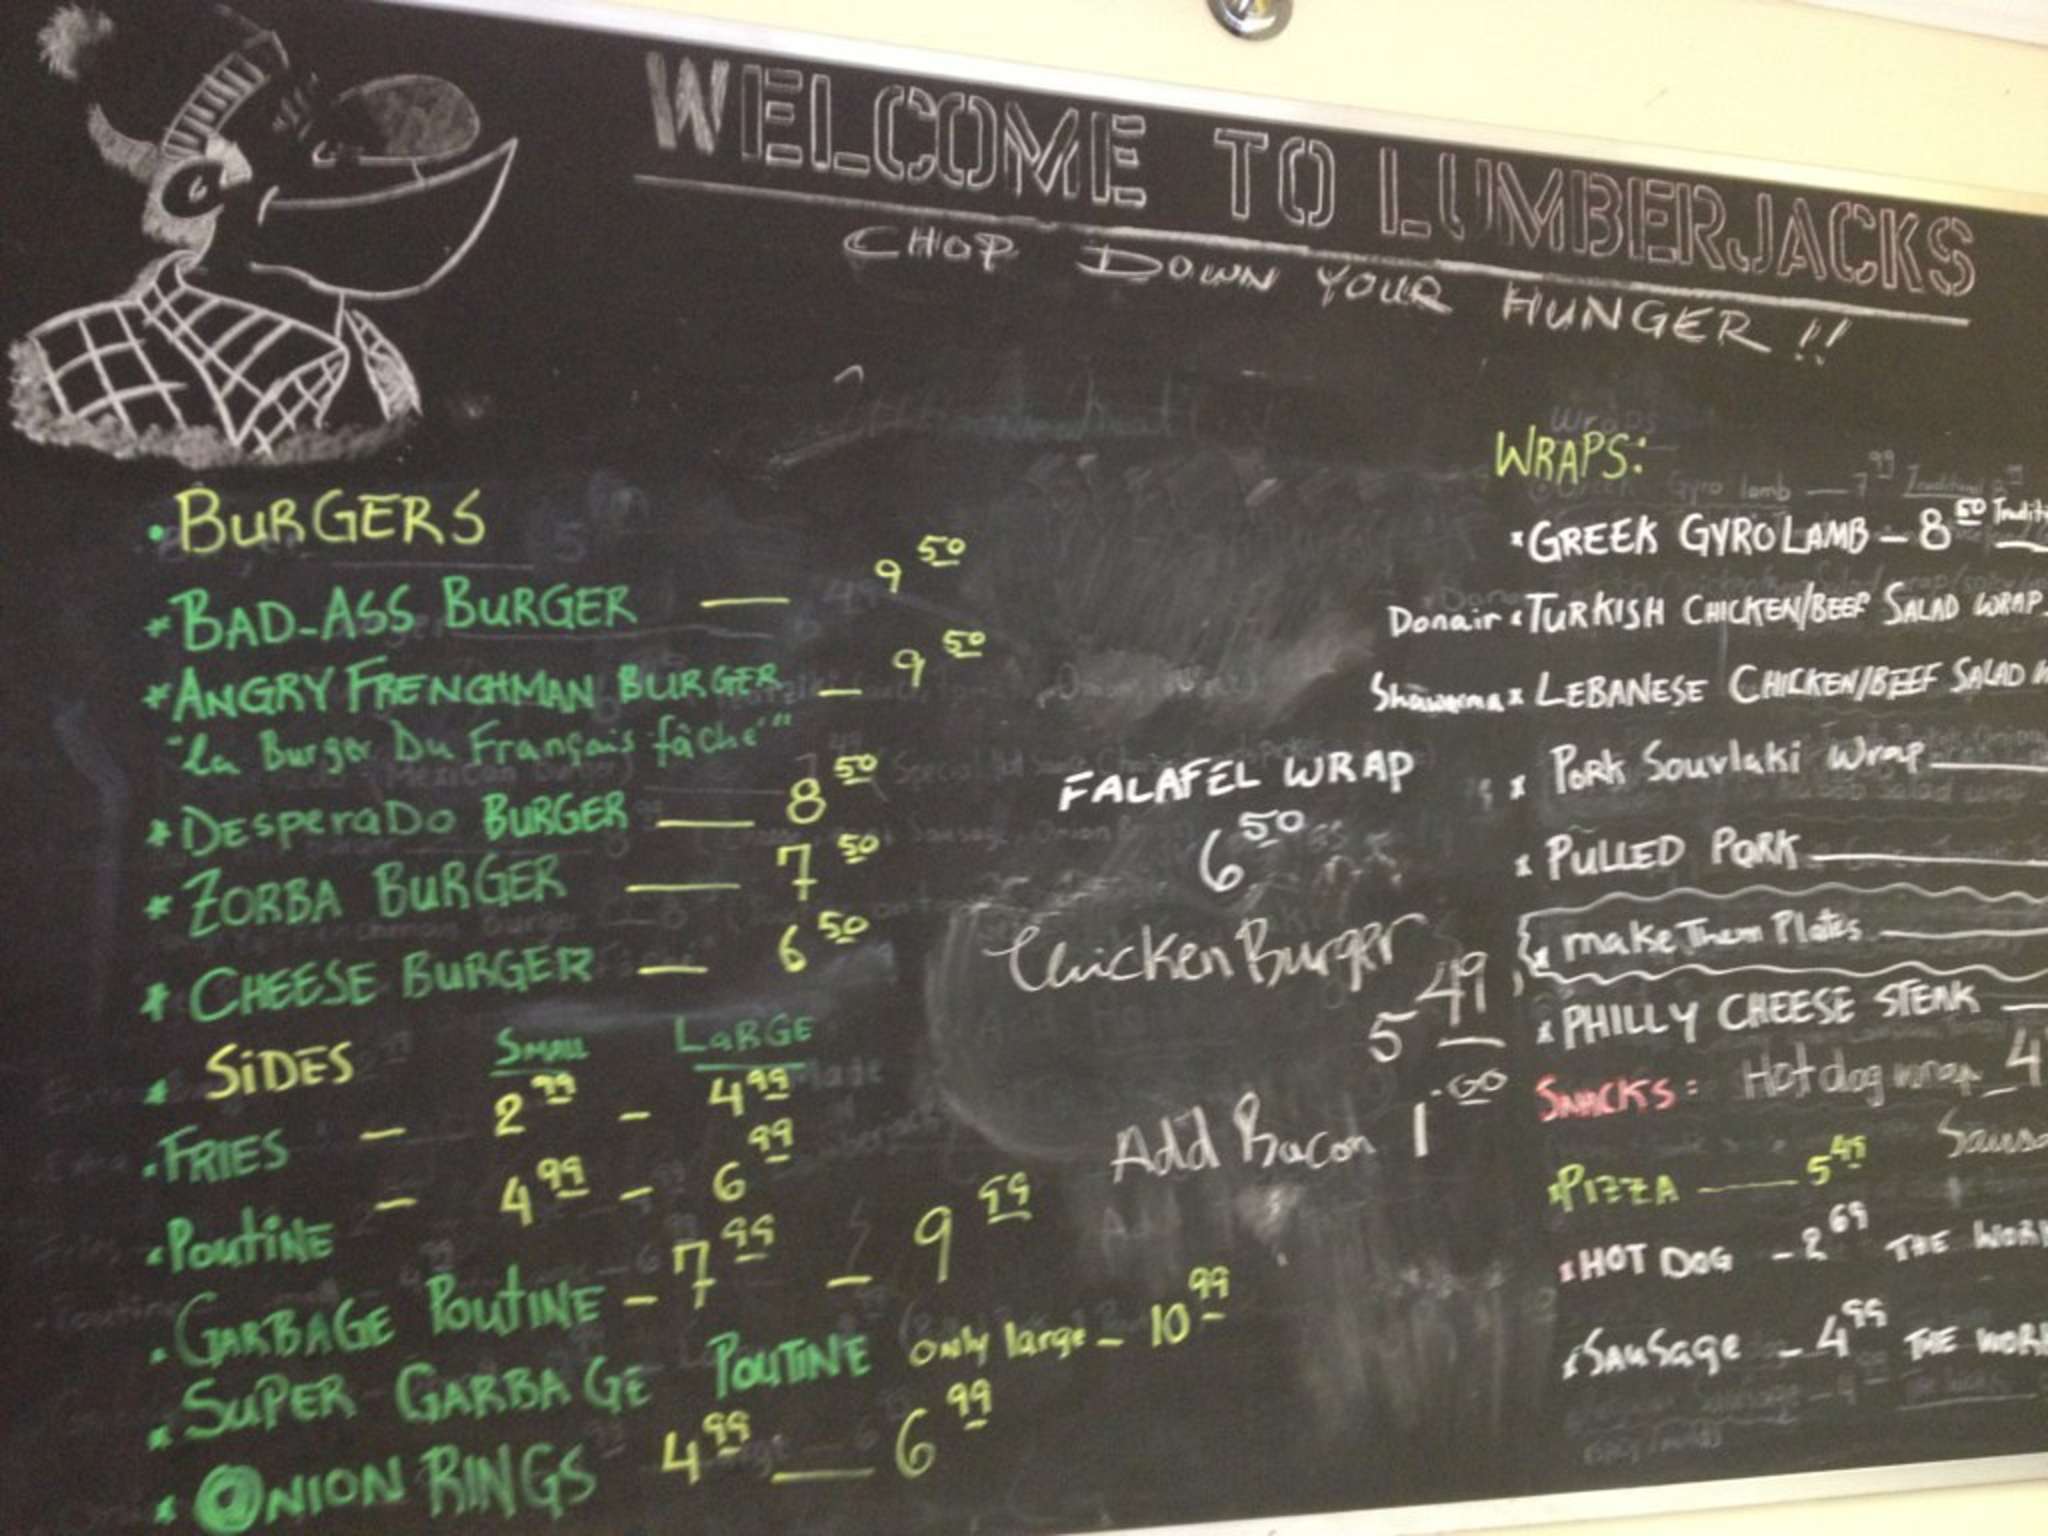 WELCOME TO LUMBERJACKS
CHOP DOWN YOUR HUNGER!!
• BURGERS
* BAD-ASS BURGER — 9 50
* ANGRY FRENCHMAN BURGER — 9 50
"La Burger Du Français fâché"
* DESPERADO BURGER — 8 50
* ZORBA BURGER — 7 50
* CHEESE BURGER — 6 50
* SIDES SMALL LARGE
• FRIES — 2 99 — 4 99
• POUTINE — 4 99 — 6 99
• GARBAGE POUTINE — 7 99 — 9 99
* SUPER GARBAGE POUTINE only large — 10 99
* ONION RINGS 4 99 — 6 99
FALAFEL WRAP
6 50
Chicken Burger
5 49
Add Bacon 1.00
WRAPS:
* GREEK GYRO LAMB — 8 50
Donair * TURKISH CHICKEN/BEEF SALAD WRAP
Shawarma * LEBANESE CHICKEN/BEEF SALAD
* PORK Souvlaki Wrap
* PULLED PORK
* make Them Plates
* PHILLY CHEESE STEAK
SNACKS: Hot dog wrap 4
* PIZZA — 5 49
* HOT DOG — 2 69 THE
* SAUSAGE — 4 99 THE